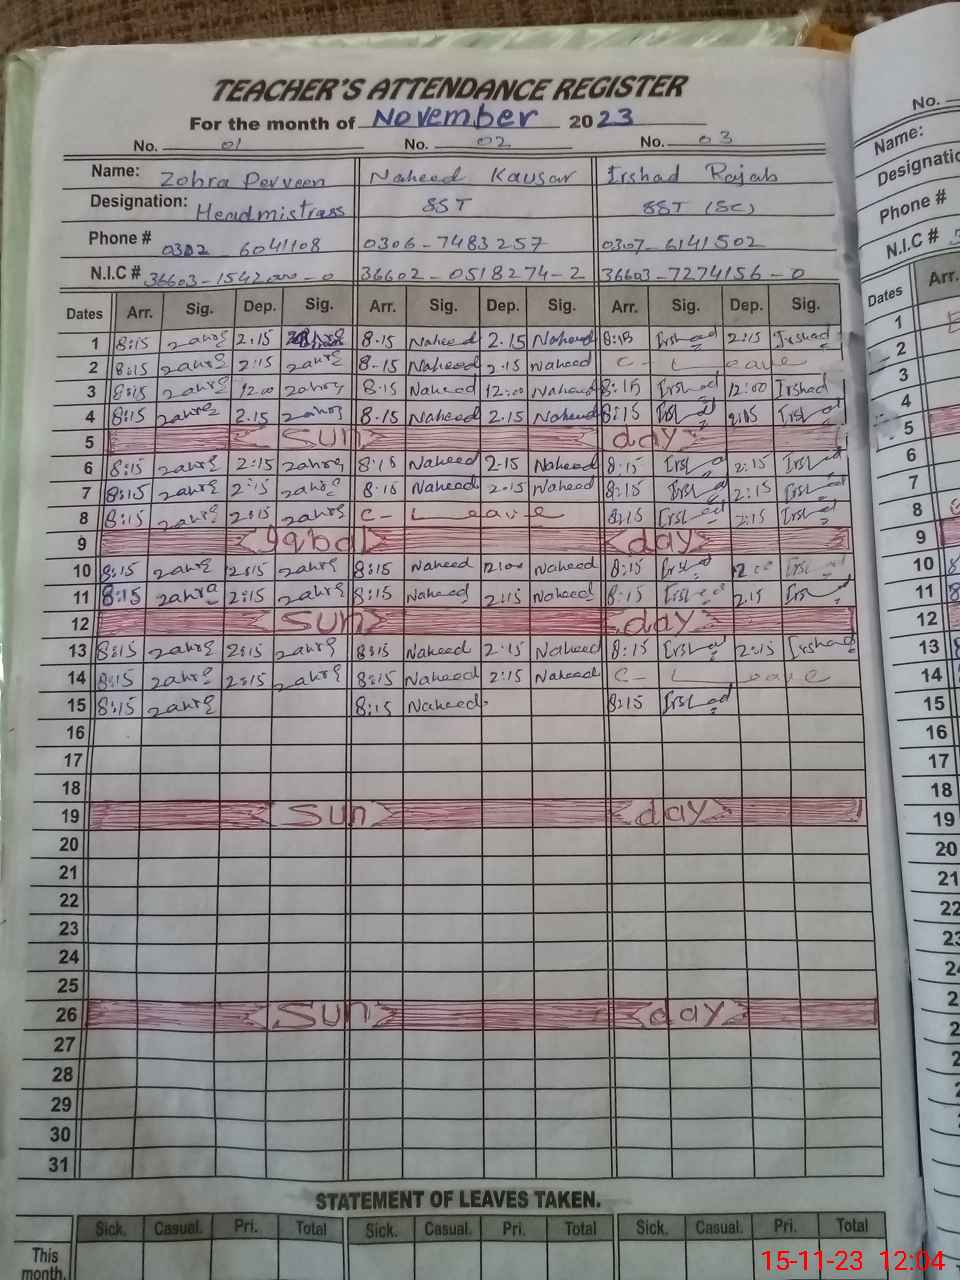 TEACHER'S ATTENDANCE REGISTER
For the month of November 2023
No. 01 No. 02 No. 03
Name: Zohra Perveen Naheed Kausar Irshad Rajab
Designation: Headmistrass SST SST (SC)
Phone # 0302 - 6041108 0306-7483257 0307-6141502
N.I.C # 36602-0518274-2 36603-7274156-0
Dates Arr. Sig. Dep. Sig. Arr. Sig. Dep. Sig. Arr. Sig. Dep. Sig.
1 8:15 zahra 2:15 8-15 Naheed 2.15 Naheed Irshad 2:15 Irshad
2 8:15 zahra 2:15 zahra 8-15 Naheed 2.15 Naheed C- Leave
3 8:15 zahra 12:00 zahra 8-15 Naheed 12:00 Naheed 8:15 Irshad 12:00 Irshad
4 8:15 zahra 2.15 zahra 8-15 Naheed 2.15 Naheed 8:15 Irshad Irshad
5 Sun day
6 8:15 zahra 2:15 zahra 8:15 Naheed 2-15 Naheed 8:15 Irshad 2:15 Irshad
7 8:15 zahra 2:15 zahra 8-15 Naheed 2-15 Naheed 8:15 Irshad 2:15 Irshad
8 8:15 zahra 2:15 zahra C- Leave 8:15 Irshad 2:15 Irshad
9 Iqbal day
10 8:15 zahra zahra 8:15 Naheed 12:00 Naheed 8:15 Irshad Irshad
11 8:15 zahra 2:15 zahra 8:15 Naheed 2:15 Naheed 8:15 Irshad 2.15 Irshad
12 Sun day
13 8:15 zahra 2:15 zahra 8:15 Naheed 2:15 Naheed 8:15 Irshad 2:15 Irshad
14 8:15 zahra 2:15 zahra 8:15 Naheed 2:15 Naheed C- Leave
15 8:15 zahra 8:15 Naheed 8:15 Irshad
16
17
18
19 Sun day
20
21
22
23
24
25
26 Sun day
27
28
29
30
31
STATEMENT OF LEAVES TAKEN.
Sick. Casual. Pri. Total Sick. Casual. Pri. Total Sick. Casual. Pri. Total
This
month.
No.
Name:
Phone #
N.I.C #
Dates Arr.
1
2
3
4
5
6
7
8
9
10
11
12
13
14
15
16
17
18
19
20
21
22
15-11-23 12:04